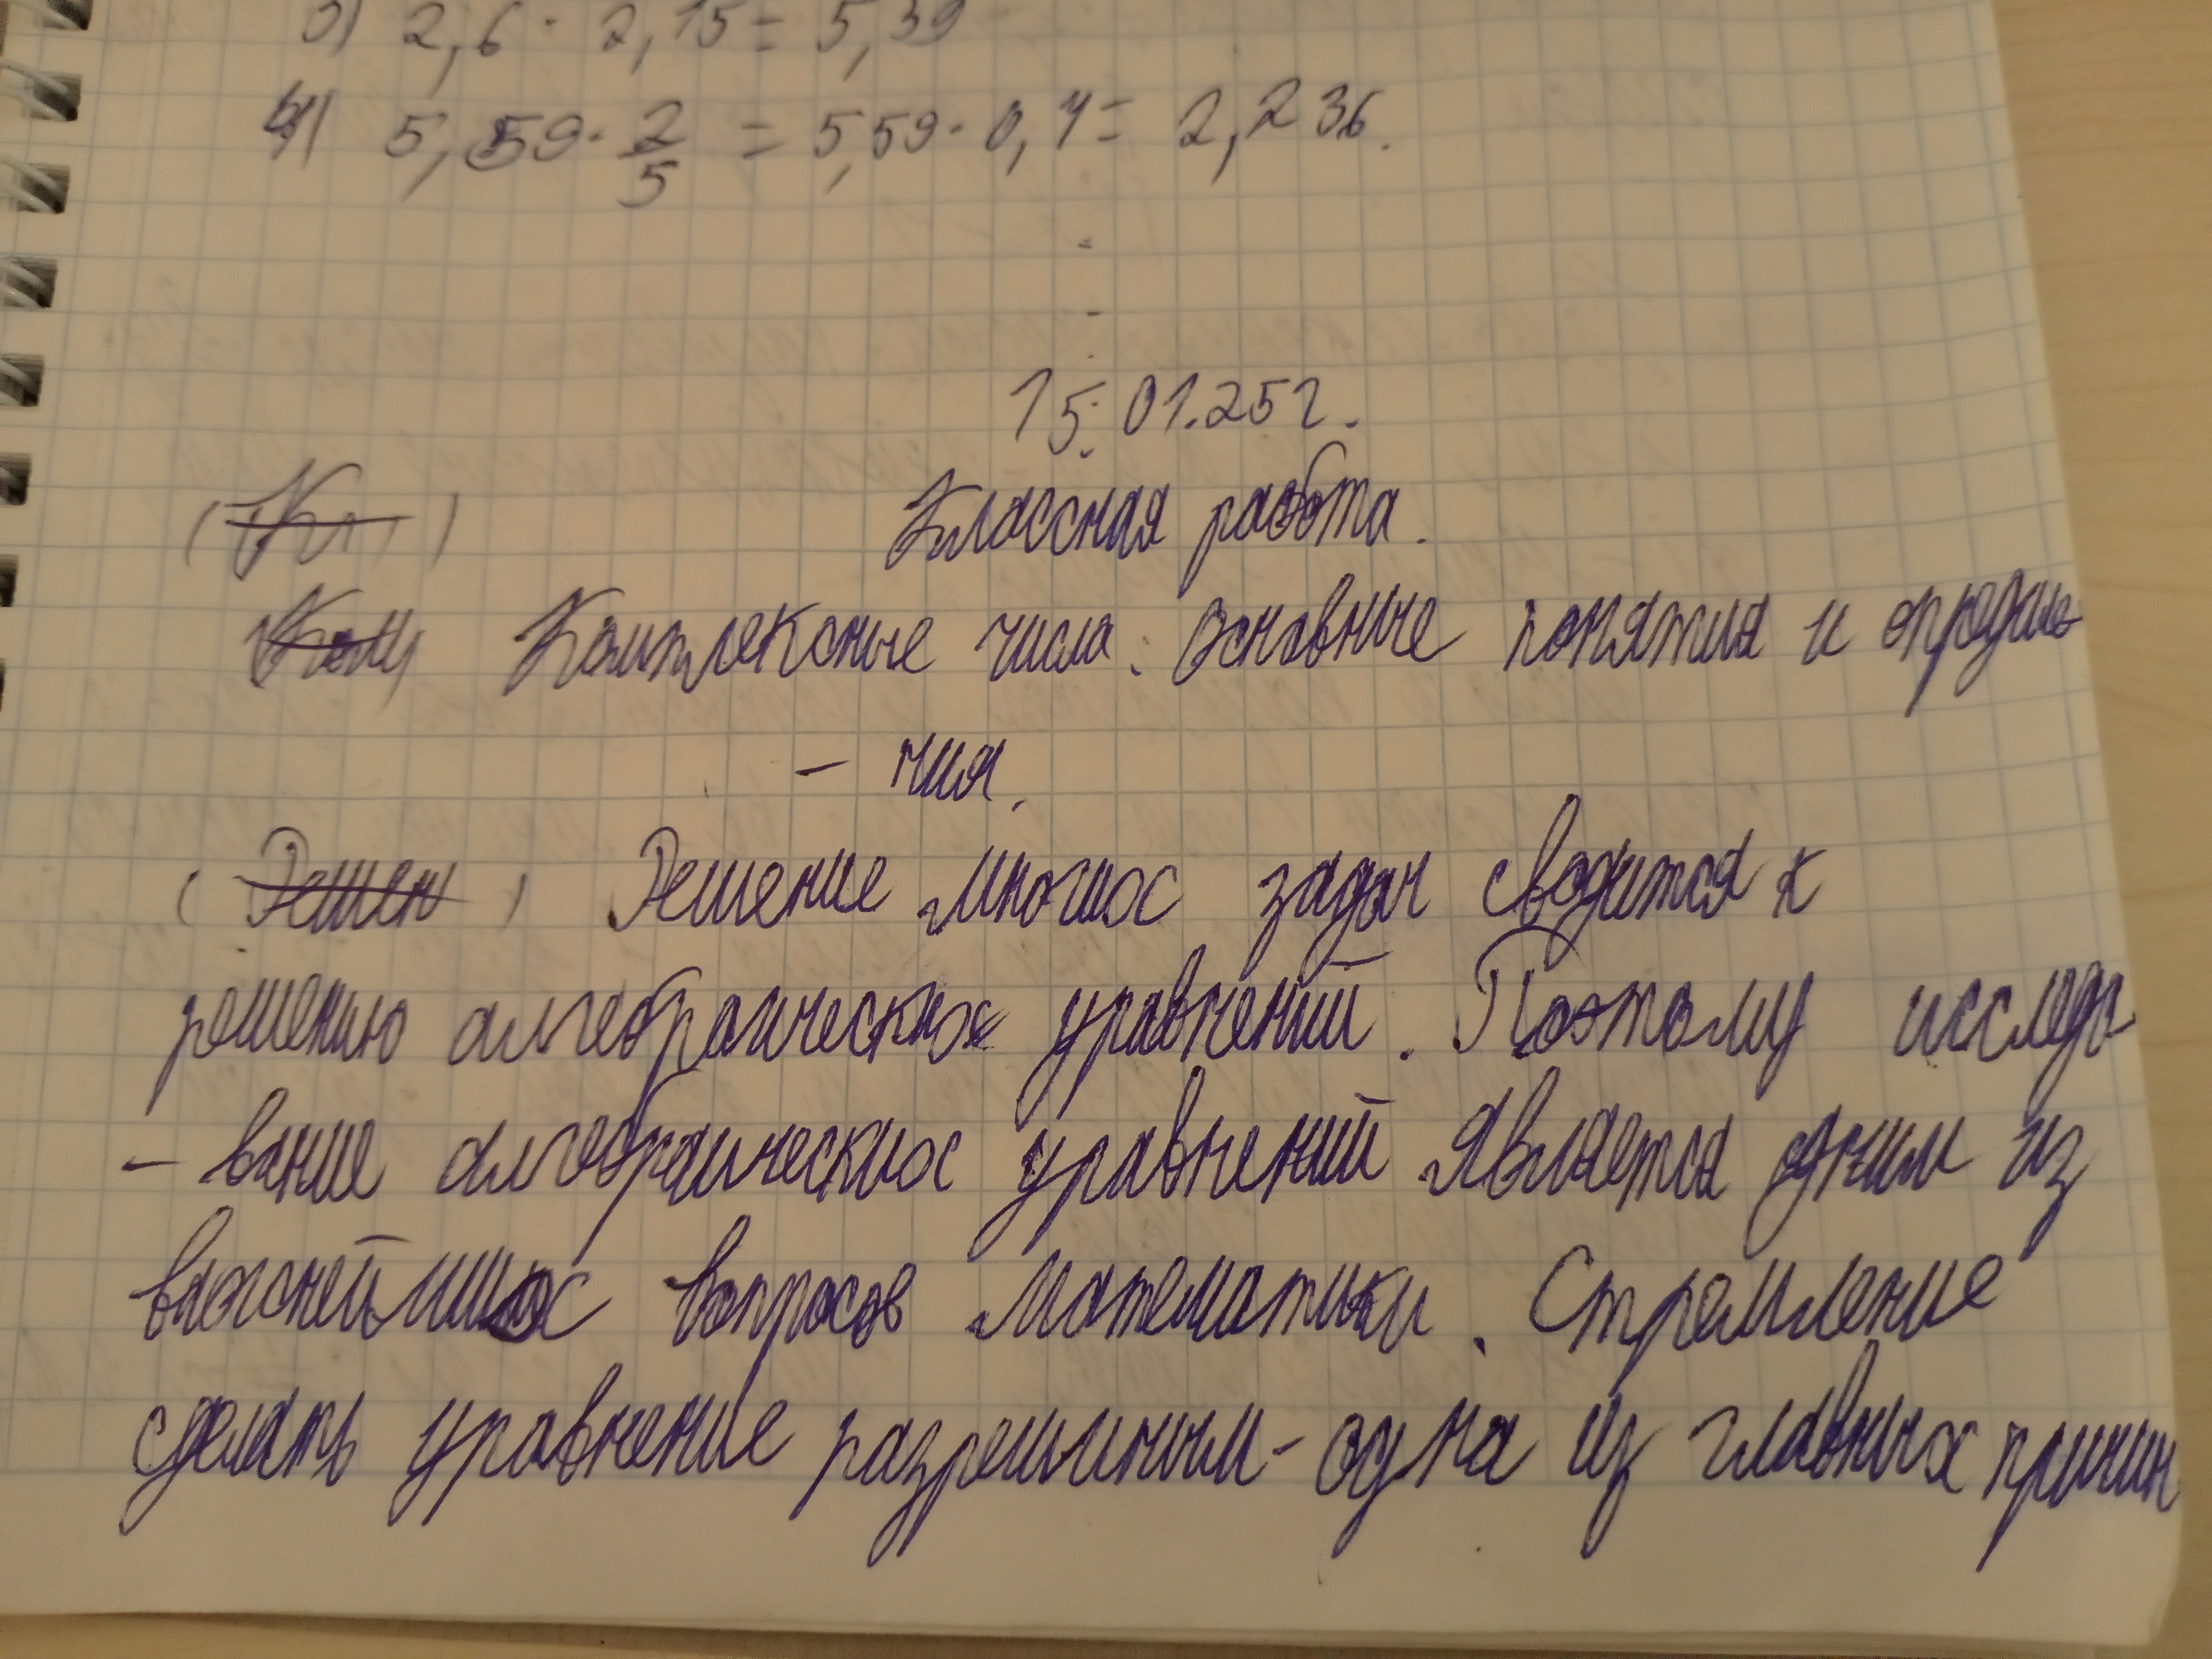 3) 2,6 · 2,15 = 5,59
4) 5,59 · 2/5 = 5,59 · 0,4 = 2,236.
15.01.25г.
Классная работа.
Комплексные числа. Основные понятия и определе
- ния.
(Решен) Решение многих задач сводится к
решению алгебраических уравнений. Поэтому исследо
- вание алгебраических уравнений является одним из
важнейших вопросов математики. Стремление
сделать уравнение разрешимым - одна из главных причин